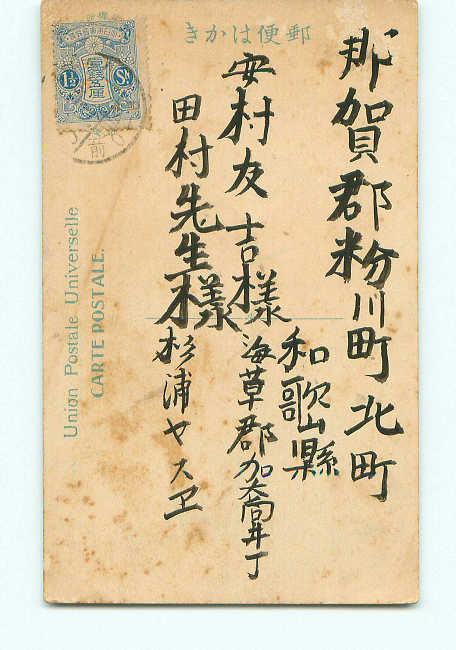 郵便はかき
那賀郡粉川町北町
安村友吉様
田村先生様
和歌山縣
海草郡加斎井丁
杉浦ヤスヱ
Union Postale Universelle
CARTE POSTALE.
1½ Sn.
前